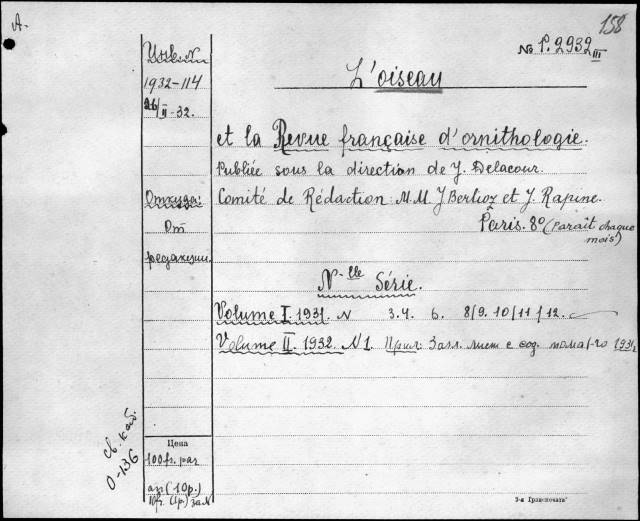 А.
158
No P. 2932 III
Инв. N
1932-114
26/II-32.
L'oiseau
et la Revue française d'ornithologie.
Publiée sous la direction de J. Delacour.
Откуда:
Comité de Rédaction: M.M. J Berlioz et J. Rapine.
От
Paris. 8° (Parait chaque
mois)
редакции.
N-lle Série.
Volume I. 1931. N 3.4. 6. 8/9. 10/11/12.
Volume II. 1932. N1. Прил. Загл. лист с сод. тома I-го 1931.
св. каб.
0-136
Цена
100 fr. par
an (10р.)
10fr. (1р.) за N
3-я Гранпечати